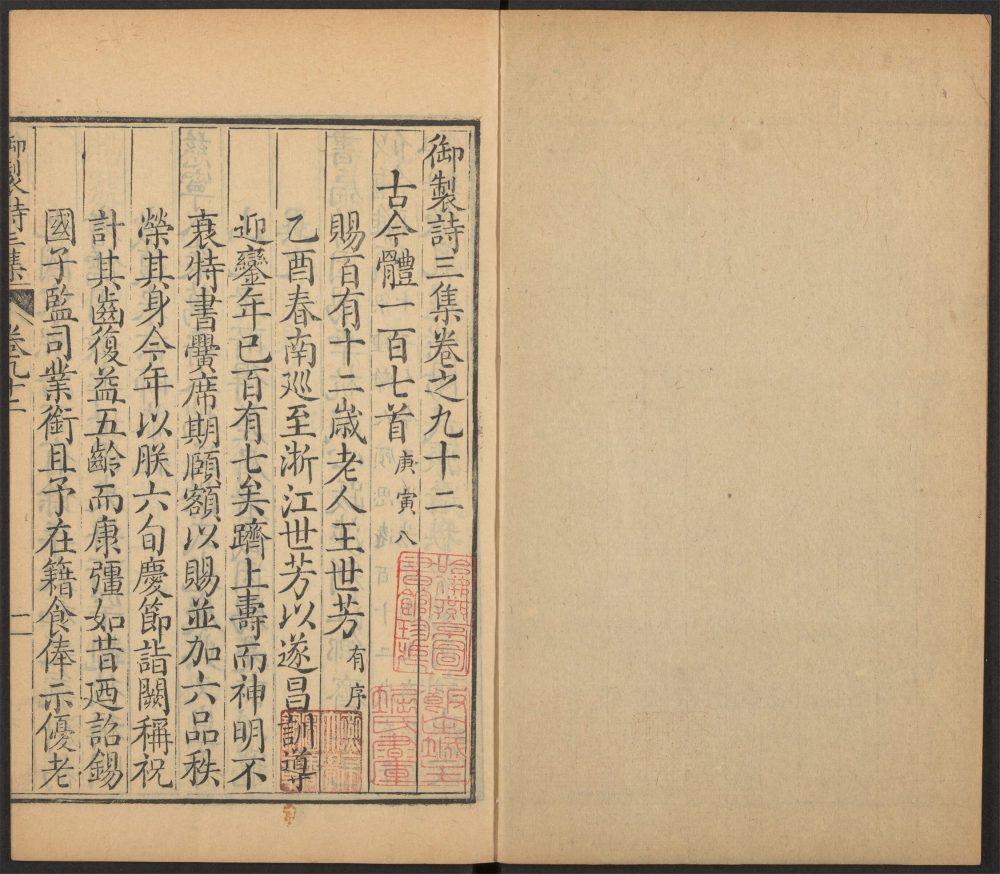 御製詩三集卷之九十二
古今體一百七首 庚寅八
賜百有十二歲老人王世芳 有序
乙酉春南廵至浙江世芳以遂昌訓導
迎鑾年已百有七矣躋上壽而神明不
衰特書黌席期頤額以賜並加六品秩
榮其身今年以朕六旬慶節詣闕稱祝
計其齒復益五齡而康彊如昔迺詔錫
國子監司業銜且予在籍食俸示優老
御製詩三集 卷九十二 一
哈佛燕京圖書館珍藏